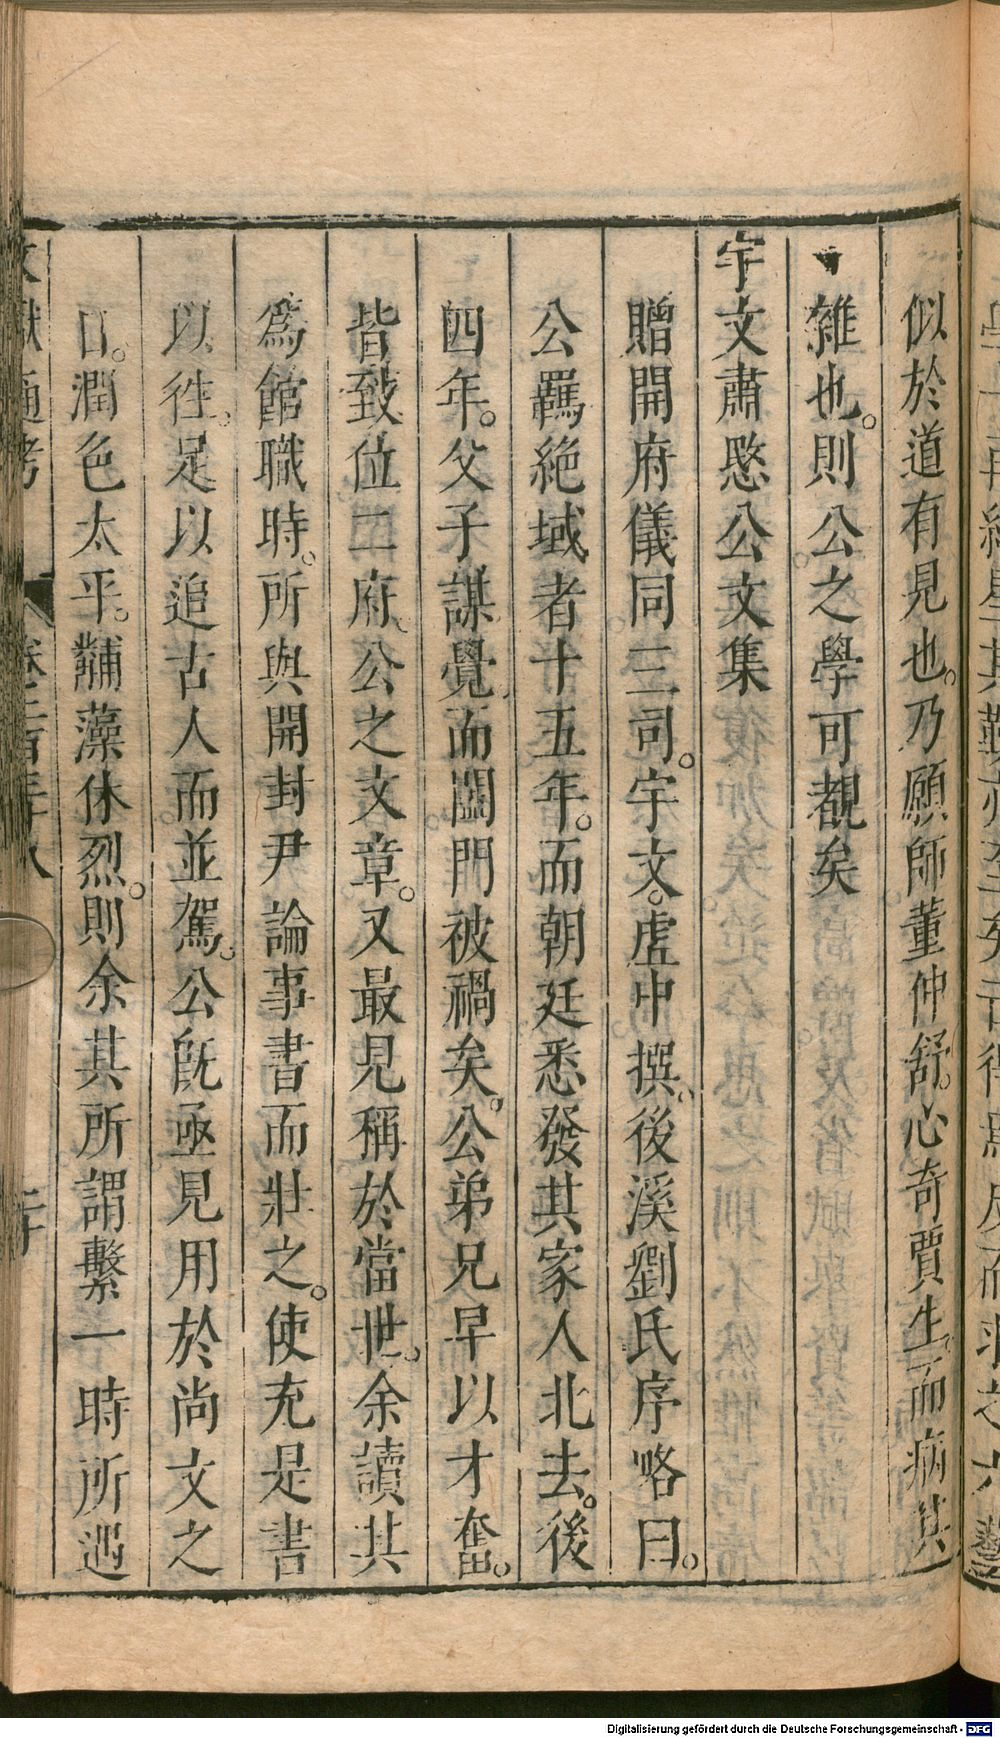 似於道有見也。乃願師董仲舒。心奇賈生。而病其
雜也。則公之學可覩矣
宇文肅愍公文集
贈開府儀同三司。宇文。虛中撰。後溪劉氏序略曰。
公羈絶域者十五年。而朝廷悉發其家人北去。後
四年。父子謀覺。而闔門被禍矣。公弟兄早以才奮。
皆致位二府。公之文章。又最見稱於當世。余讀其
爲館職時。所與開封尹論事書而壯之。使充是書
以徃。足以追古人而並駕。公旣亟見用於尚文之
日。潤色太平。黼藻休烈。則余其所謂繫一時所遇
文獻通考 卷二百三十八
Digitalisierung gefördert durch die Deutsche Forschungsgemeinschaft - DFG